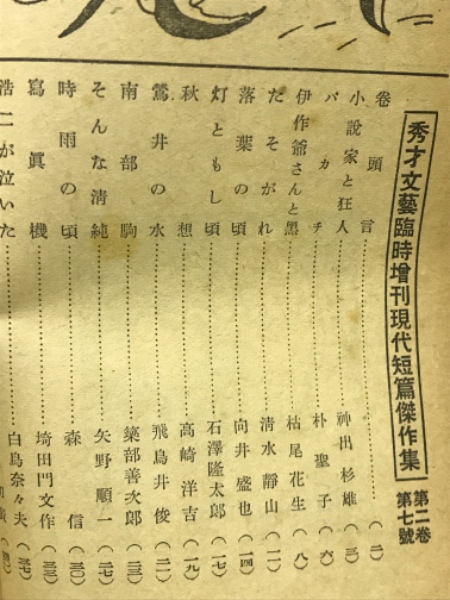 秀才文藝臨時增刊現代短篇傑作集
第二卷
第七號
卷頭言……（二）
小說家と狂人……神出杉雄（三）
バカチ……朴聖子（六）
伊作爺さんと黑……枯尾花生（八）
たそがれ……淸水靜山（一一）
落葉の頃……向井盛也（一四）
灯ともし頃……石澤隆太郎（一七）
秋想……高崎洋吉（一九）
鶯井の水……飛鳥井俊（二一）
南部駒……築部善次郎（二三）
そんな淸純……矢野順一（二七）
時雨の頃……森信（三〇）
寫眞機……埼田門文作（三三）
浩二が泣いた……白鳥奈々夫（三七）